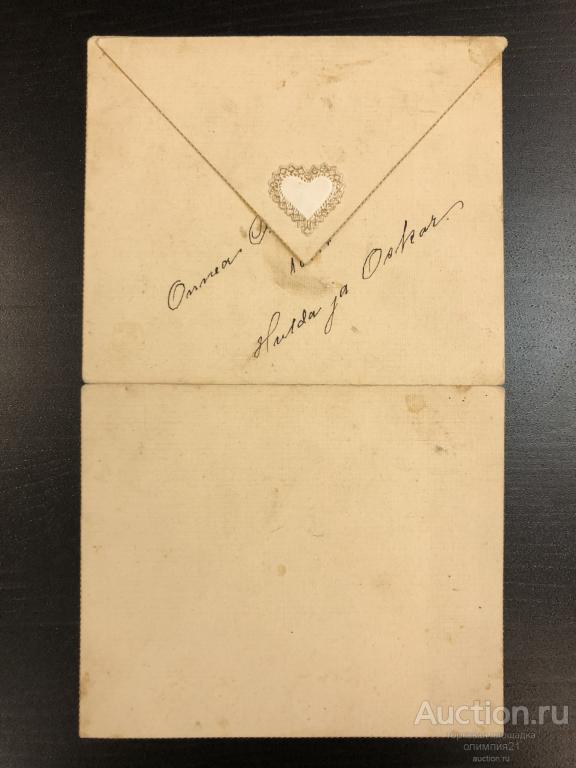 Onnea
Hulda ja Oskar.
Auction.ru
Торговая площадка
олимпия21
auction.ru